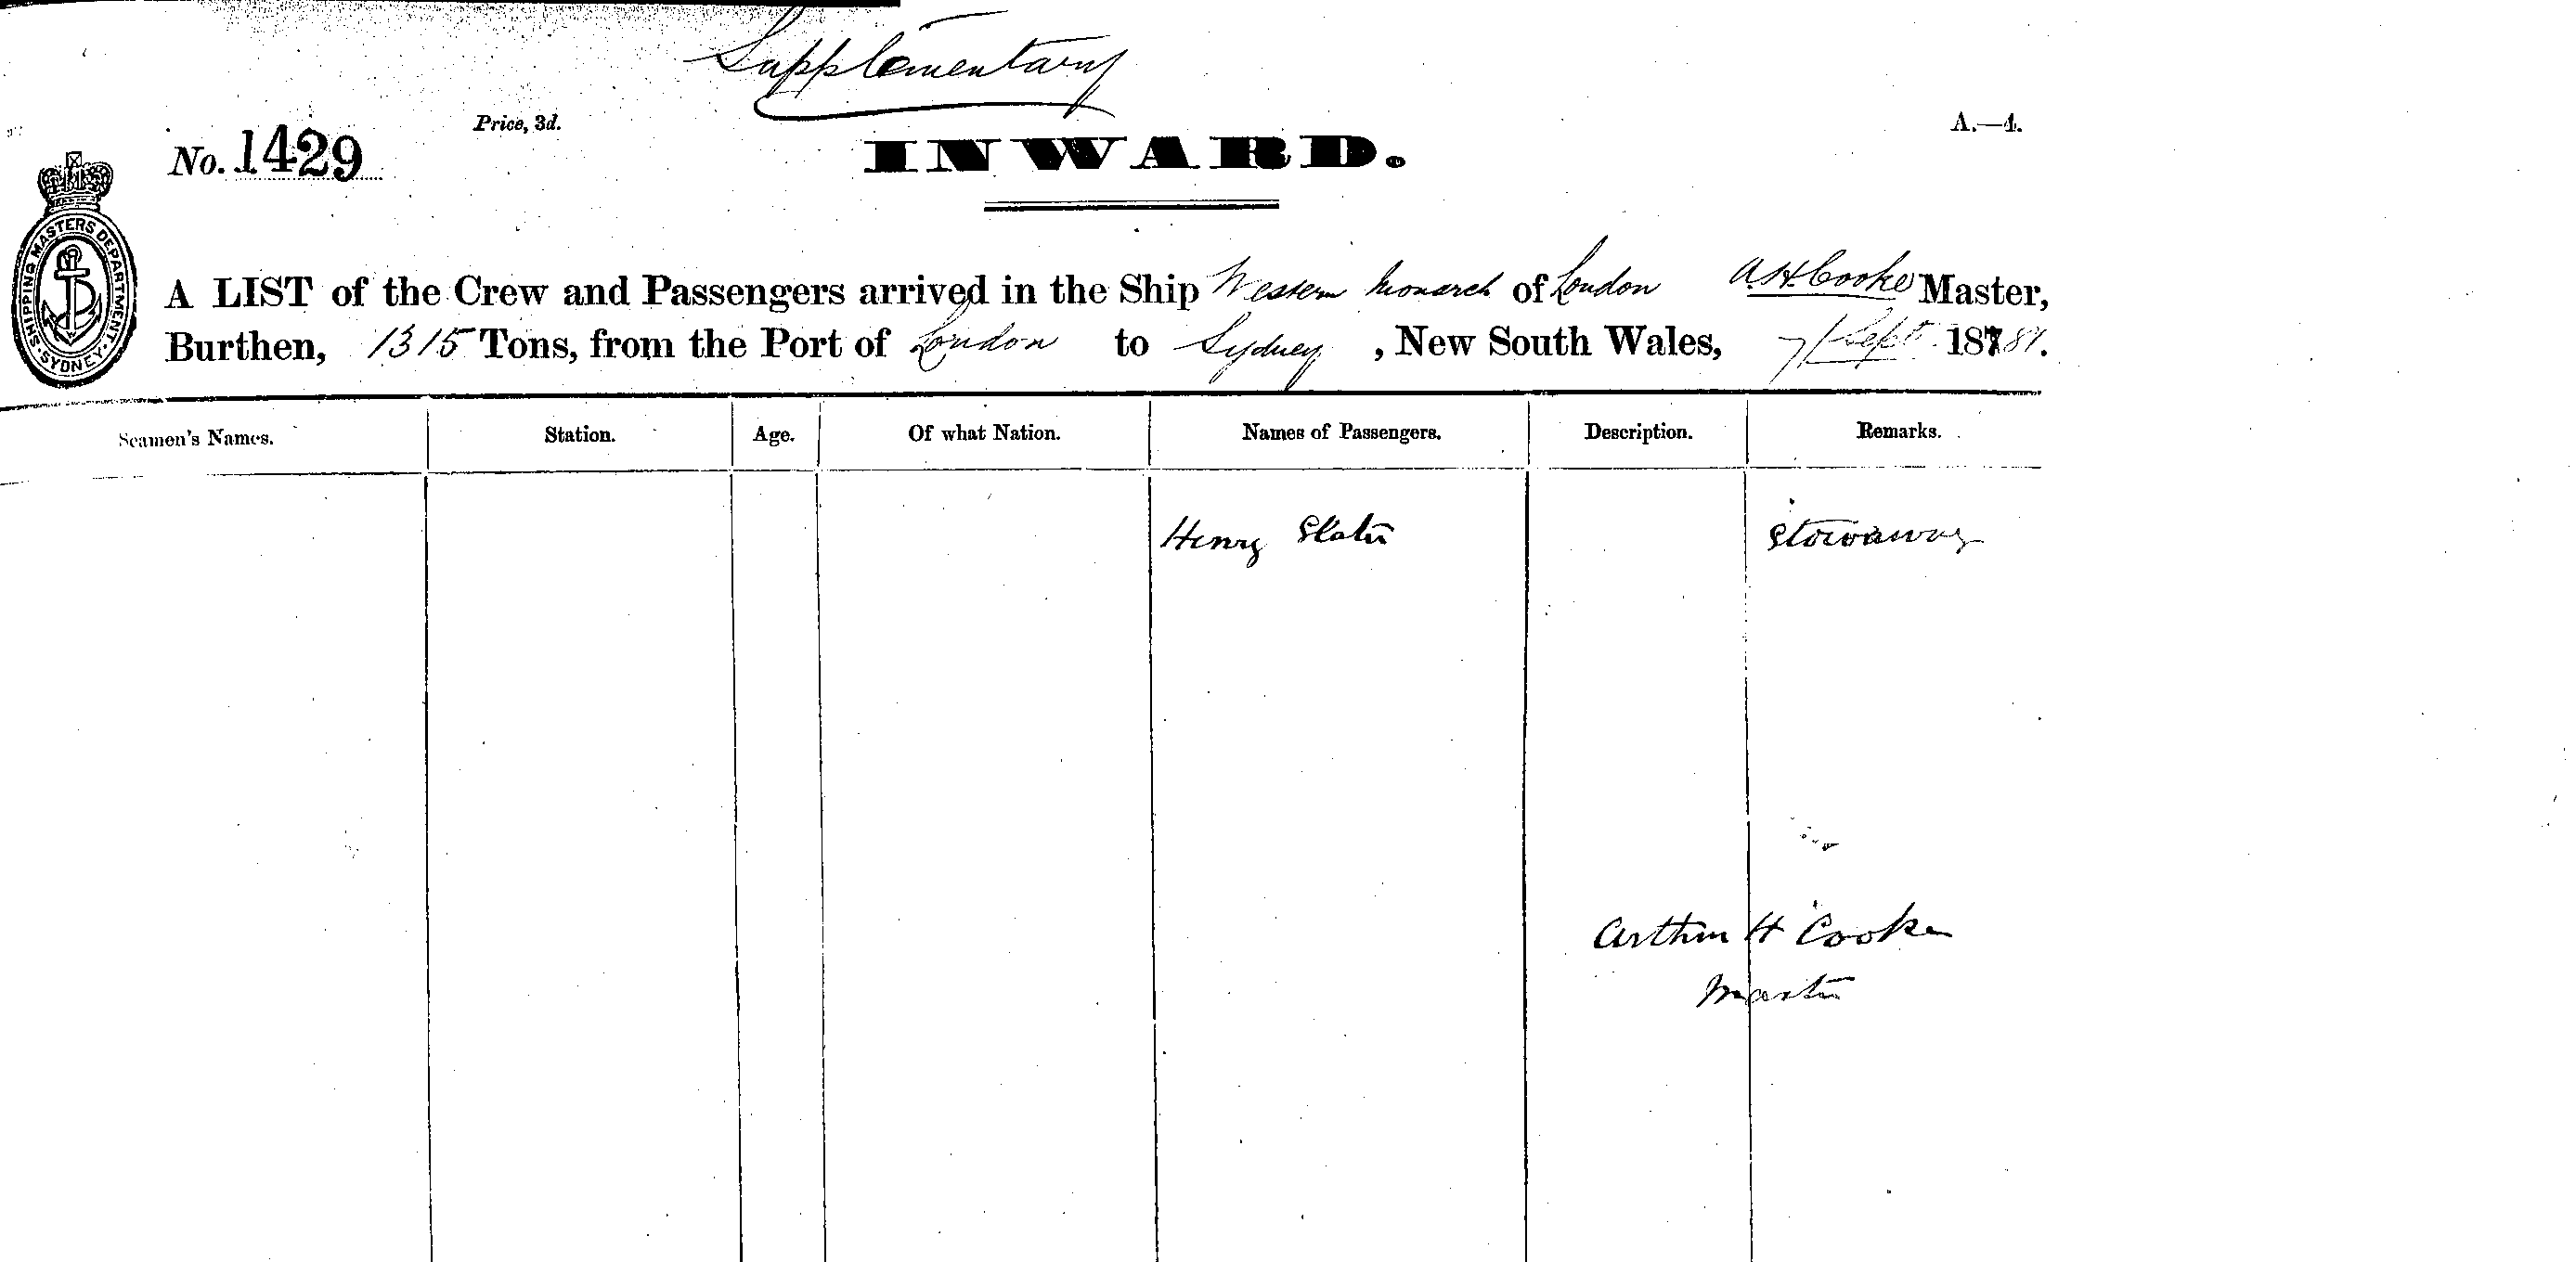 Supplementary
Price, 3d.
A.—4.
No. 1429
INWARD.
SHIPPING MASTERS DEPARTMENT. SYDNEY.
A LIST of the Crew and Passengers arrived in the Ship Western Monarch of London A. H. Cooke Master,
Burthen, 1315 Tons, from the Port of London to Sydney, New South Wales, 7/ Sept 187 81.
Seamen's Names. Station. Age. Of what Nation. Names of Passengers. Description. Remarks.
Henry Slater Stowaway
Arthur H Cooke
Master